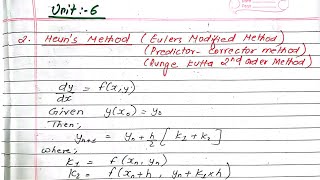 Unit:-6
2. Heun's Method (Eulers Modified Method)
(Predictor-Corrector method)
(Runge Kutta 2nd order Method)
dy/dx = f(x,y)
Given y(x₀) = y₀
Then;
yₙ₊₁ = yₙ + h/2 [k₁ + k₂]
where;
k₁ = f(xₙ, yₙ)
k₂ = f(xₙ+h, yₙ+k₁×h)